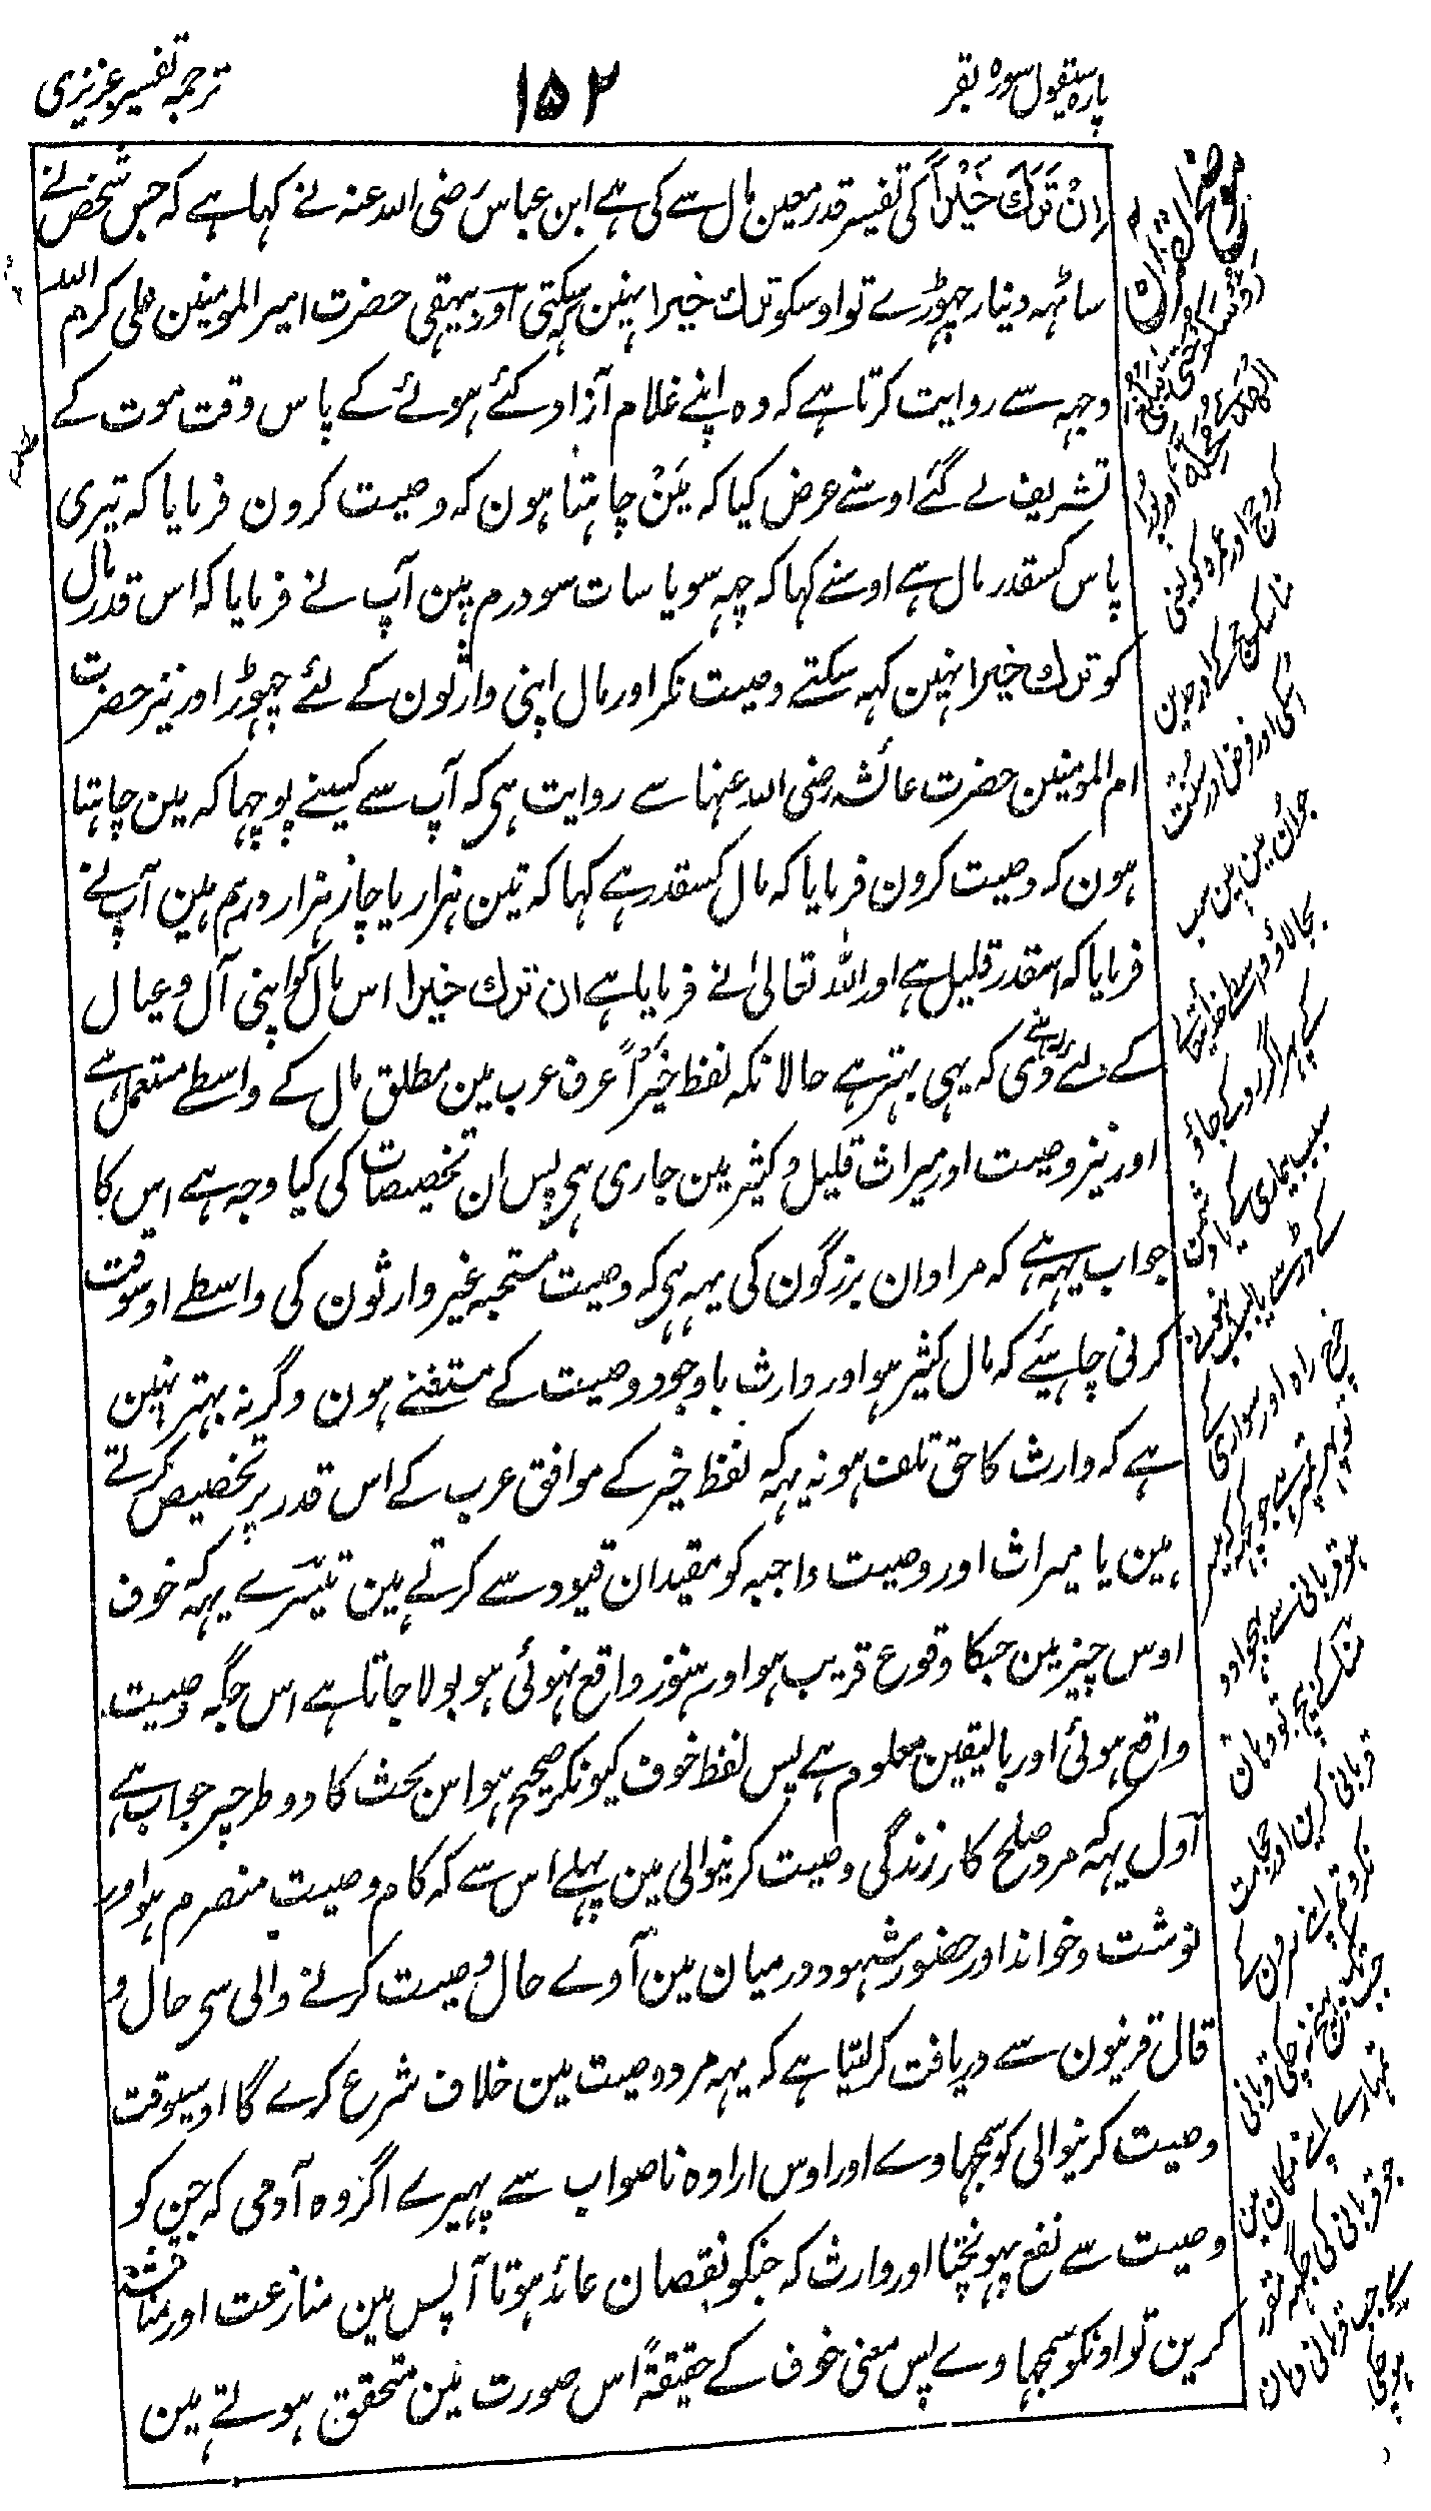 پارہ سیقول سورہ بقر
۱۵۲
ترجمہ تفسیر عزیزی
اِنْ تَرَكَ خَيْراً کی تفسیر قدر معین مال سے کی ہے ابن عباس رضی اللہ عنہ نے کہا ہے کہ جس شخص نے
ساٹہہ دینار چہوڑے تو اوسکو ترك خیرا نہین کہہ سکتی اور بیہقی حضرت امیر المومنین علی کرم اللہ
وجہہ سے روایت کرتا ہے کہ وہ اپنے غلام آزاد کئے ہوئے کے پاس وقت موت کے
تشریف لے گئے اوسنے عرض کیا کہ مَیَنْ چاہتا ہون کہ وصیت کرون فرمایا کہ تیری
پاس کسقدر مال ہے اوسنے کہا کہ چہہ سو یا سات سو درم ہین آپ نے فرمایا کہ اس قدر مال
کو ترك خیرا نہین کہہ سکتے وصیت نکر اور مال اپنی وارثون کے لئے چہوڑ اور نیز حضرت
ام المومنین حضرت عائشہ رضی اللہ عنہا سے روایت ہی کہ آپ سے کسینے پوچہا کہ مین چاہتا
ہون کہ وصیت کرون فرمایا کہ مال کسقدر ہے کہا کہ تین ہزار یا چار ہزار درہم ہین آپ نے
فرمایا کہ اسقدر قلیل ہے اور اللہ تعالیٰ نے فرمایا ہے ان ترك خیرا اس مال کو اپنی آل و عیال
کے لئے رہنے دی کہ یہی بہتر ہے حالانکہ لفظ خَیْراً عرف عرب مین مطلق مال کے واسطے مستعمل ہے
اور نیز وصیت اور میراث قلیل و کثیر مین جاری ہی پس ان تخصیصات کی کیا وجہ ہے اس کا
جواب یہہ ہے کہ مراد ان بزرگون کی یہہ ہی کہ وصیت مستحبہ غیر وارثون کی واسطے اوسوقت
کرنی چاہئیے کہ مال کثیر ہو اور وارث باوجود وصیت کے مستغنے ہون وگرنہ بہتر نہین
ہے کہ وارث کا حق تلف ہو نہ یہہ کہ لفظ خیر کے موافق عرب کے اس قدر پر تخصیص کرتے
ہین یا میراث اور وصیت واجبہ کو مقید ان قیود سے کرتے ہین تیسّرے یہہ کہ خوف
اوس چیز مین جبکا وقوع قریب ہو اور ہنوز واقع نہوئی ہو بولا جاتا ہے اس جگہ وصیت
واقع ہوئی اور بالیقین معلوم ہے پس لفظ خوف کیونکر صحیح ہوا س بحث کا دو طرحپر جواب ہے
اول یہہ کہ مرد صلح کار زندگی وصیت کرنیوالی مین پہلے اس سے کہ کام وصیت منصرم ہو اور
نوشت و خواند اور حضور شہود درمیان مین آوے حال وصیت کرنے والی سی حال و
قال قرنیون سے دریافت کرلیتا ہے کہ یہہ مرد وصیت مین خلاف شرع کرے گا اوسیوقت
وصیت کرنیوالی کو سمجہاوے اور اوس ارادہ ناصواب سے پہیرے اگر وہ آدمی کہ جن کو
وصیت سے نفع پہونچتا اور وارث کہ جنکو نقصان عائد ہوتا آپس مین منازعت اور مناقشہ
کرین تو اونکو سمجہاوے پس معنی خوف کے حقیقۃً اس صورت مین متحقق ہوتے ہین
موضح القرآن
کرو حج اور عمرہ کو یعنی
اسکی اور فرض اور سنت
جو ان مین ہین سب
بجا لاؤ واسطے خدائتعالے
کے پہر اگر روکے جاؤ
سبب بیماری کے یا دشمن
خرچ راہ اور سواری کے
قربانی کرین اور حجامت
نکرو تم اپنے سرون کے
جب تک نہ پہنچ چکی قربانی
تمہارے اپنے مکان مین
جو قربانی کی جگہہ مقرر
ہے جب قربانی وہان
ہو چکی